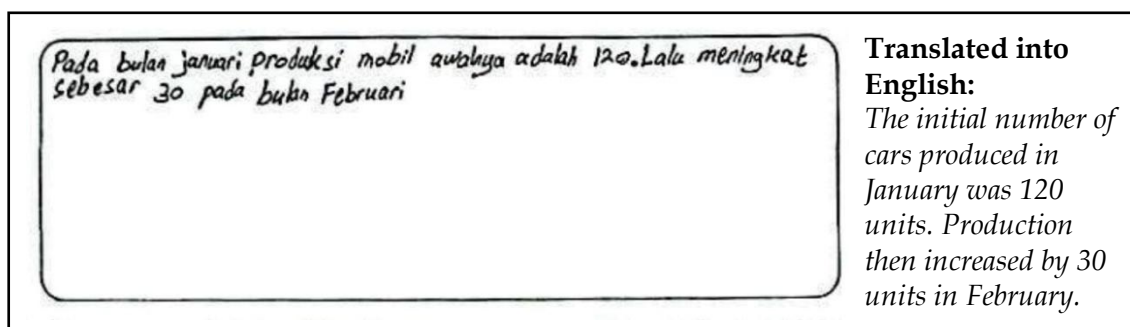 Pada bulan januari produksi mobil awalnya adalah 120. Lalu meningkat
sebesar 30 pada bulan Februari
Translated into
English:
The initial number of
cars produced in
January was 120
units. Production
then increased by 30
units in February.